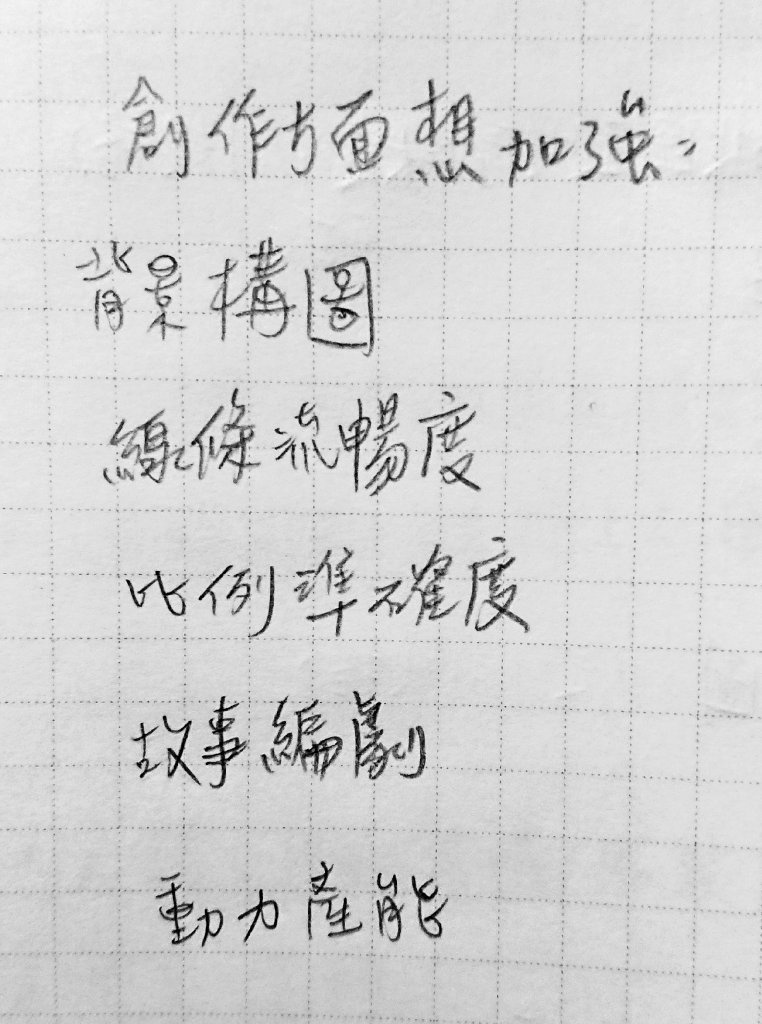 創作方面想加強:
背景構圖
線條流暢度
比例準確度
故事編劇
動力產能